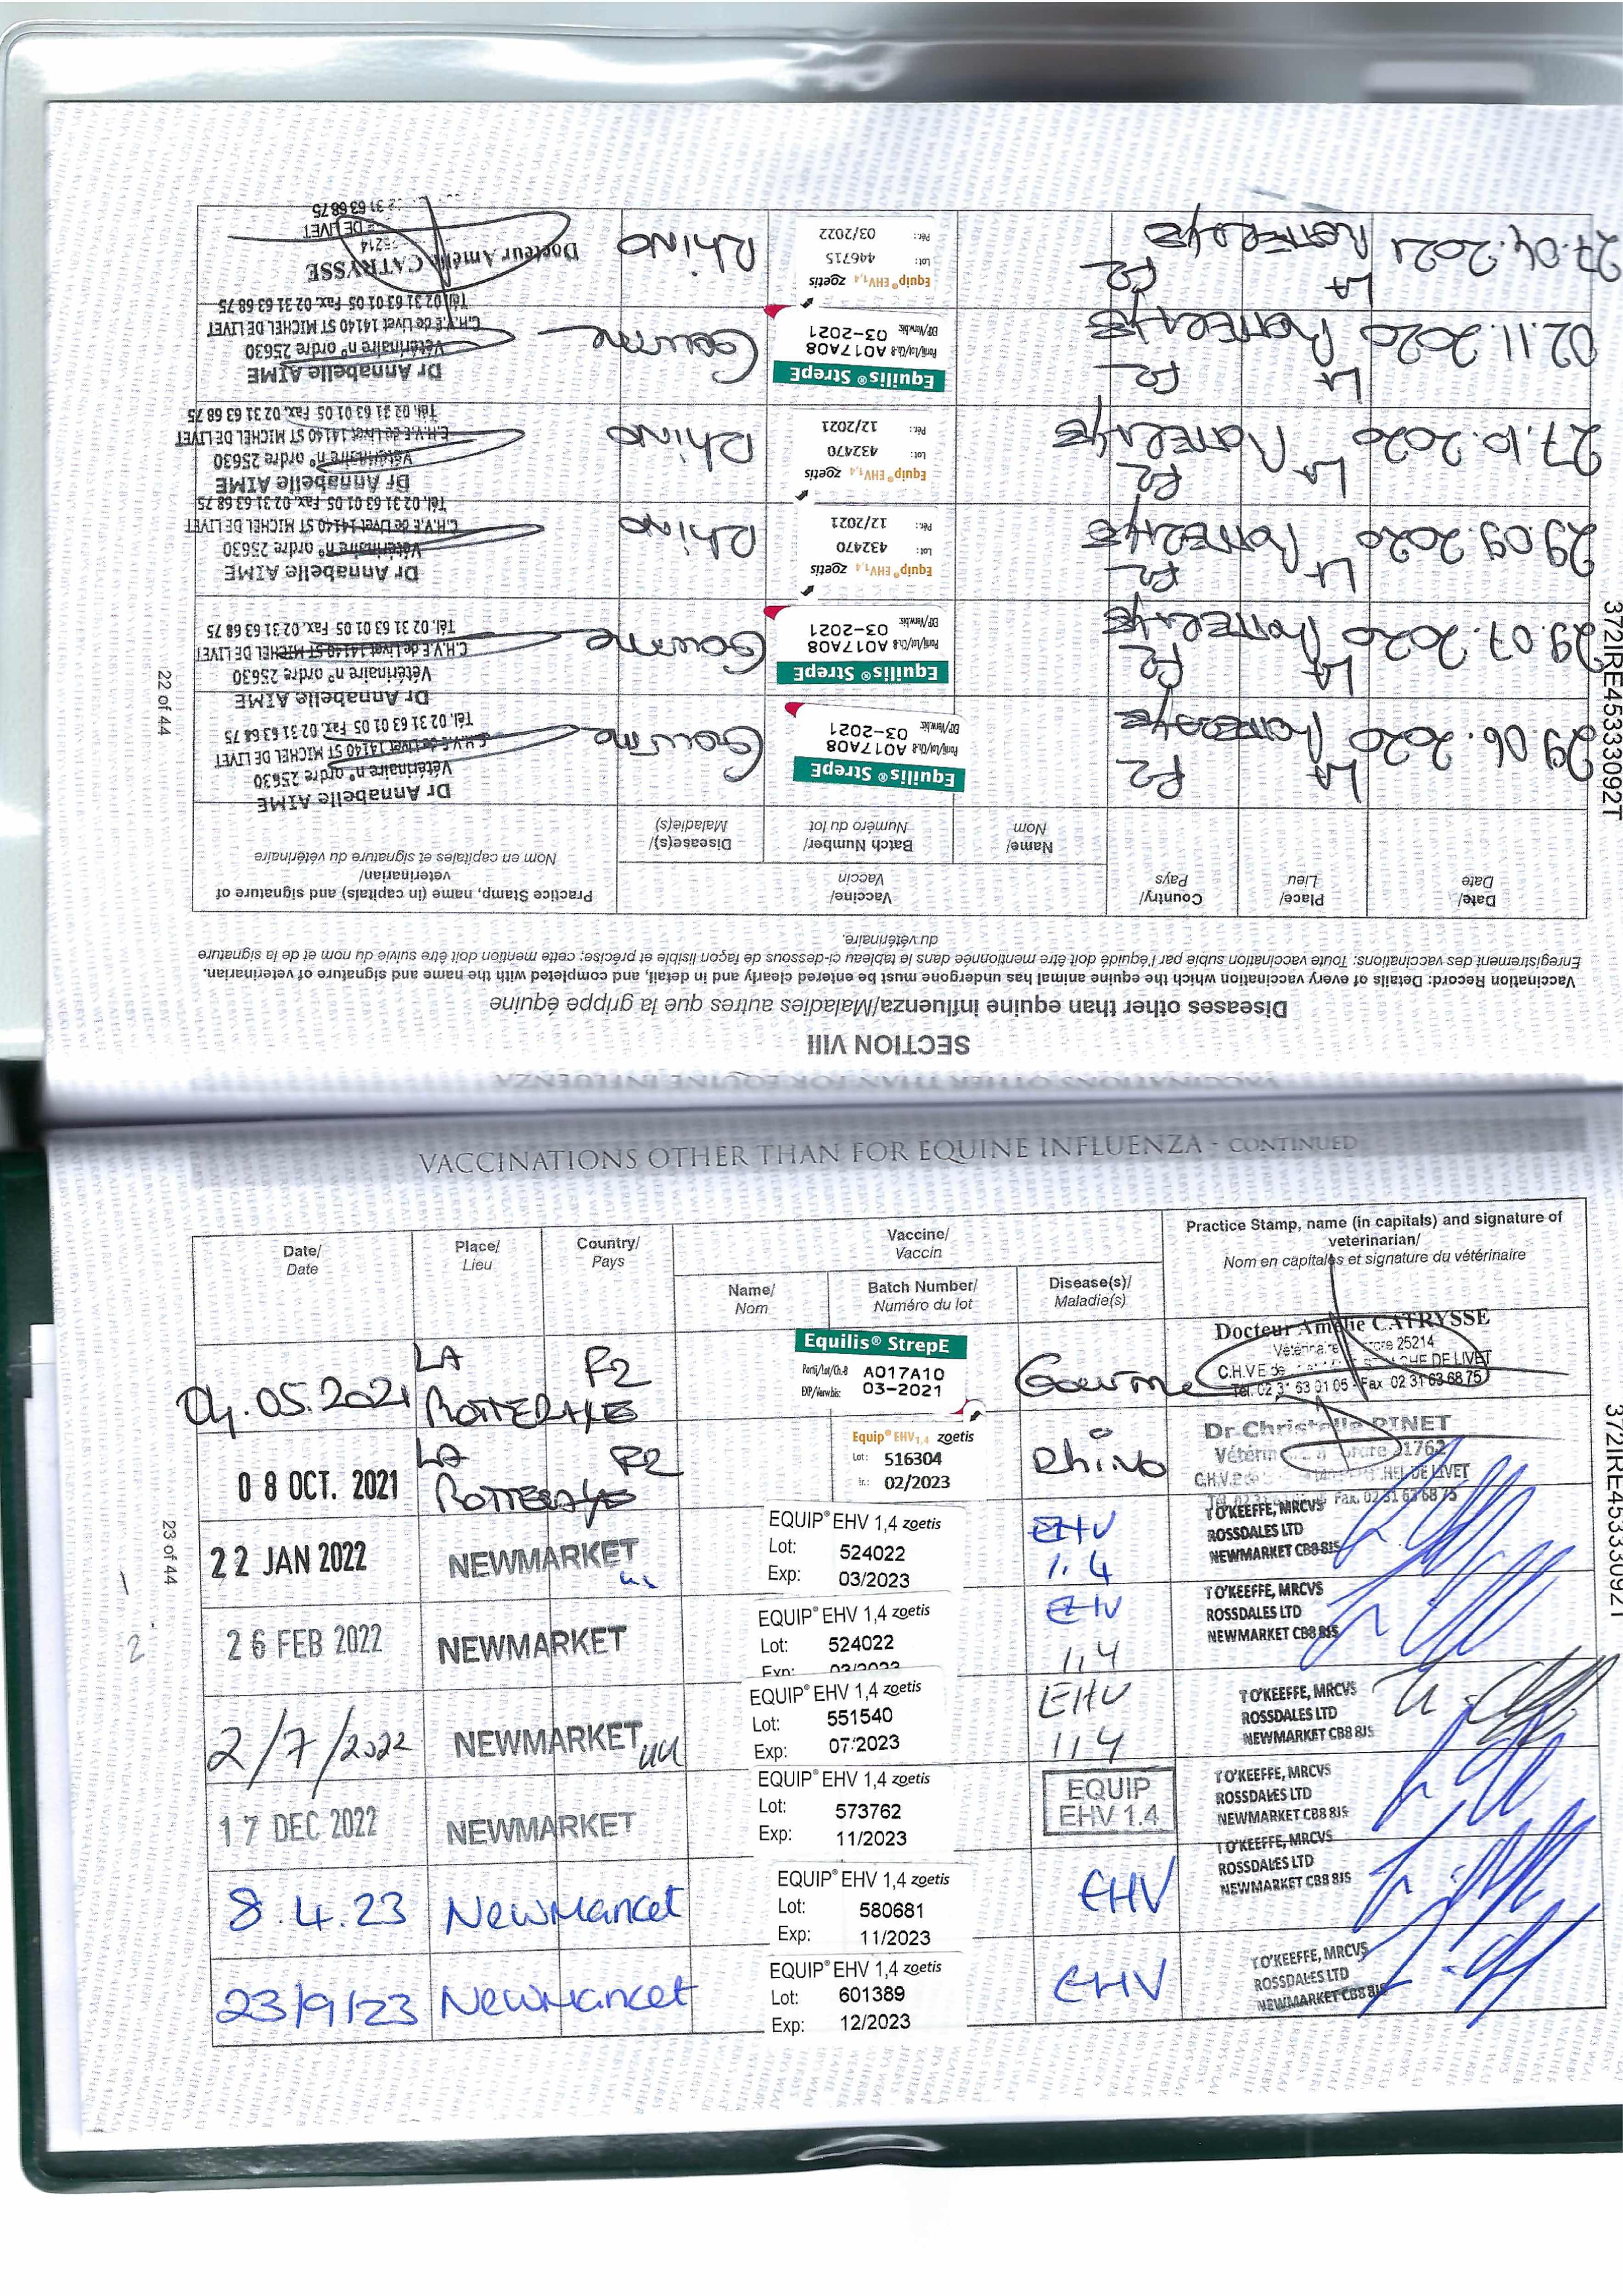 SECTION VIII
Diseases other than equine influenza/Maladies autres que la grippe équine
Vaccination Record: Details of every vaccination which the equine animal has undergone must be entered clearly and in detail, and completed with the name and signature of veterinarian.
Enregistrement des vaccinations: Toute vaccination subie par l'équidé doit être mentionnée dans le tableau ci-dessous de façon lisible et précise; cette mention doit être suivie du nom et de la signature
du vétérinaire.
Date/
Date
Place/
Lieu
Country/
Pays
Vaccine/
Vaccin
Name/
Nom
Batch Number/
Numéro du lot
Disease(s)/
Maladie(s)
Practice Stamp, name (in capitals) and signature of
veterinarian/
Nom en capitales et signature du vétérinaire
29.06.2020
LA
F2
Equilis® StrepE
A017A08
03-2021
Gourme
Dr Annabelle AIME
Vétérinaire n° ordre 25630
C.H.V.E de Livet 14140 ST MICHEL DE LIVET
Tél. 02 31 63 01 05 Fax. 02 31 63 68 75
29.07.2020
LA
F2
Equilis® StrepE
A017A08
03-2021
Gourme
Dr Annabelle AIME
Vétérinaire n° ordre 25630
C.H.V.E de Livet 14140 ST MICHEL DE LIVET
Tél. 02 31 63 01 05 Fax. 02 31 63 68 75
29.09.2020
LA
F2
Equip® EHV1,4 zoetis
Lot: 432470
Pér.: 12/2021
Rhino
Dr Annabelle AIME
Vétérinaire n° ordre 25630
C.H.V.E de Livet 14140 ST MICHEL DE LIVET
Tél. 02 31 63 01 05 Fax. 02 31 63 68 75
27.10.2020
LA
F2
Equip® EHV1,4 zoetis
Lot: 432470
Pér.: 12/2021
Rhino
Dr Annabelle AIME
Vétérinaire n° ordre 25630
C.H.V.E de Livet 14140 ST MICHEL DE LIVET
Tél. 02 31 63 01 05 Fax. 02 31 63 68 75
02.11.2020
LA
F2
Equilis® StrepE
A017A08
03-2021
Gourme
Dr Annabelle AIME
Vétérinaire n° ordre 25630
C.H.V.E de Livet 14140 ST MICHEL DE LIVET
Tél. 02 31 63 01 05 Fax. 02 31 63 68 75
27.04.2021
LA
F2
Equip® EHV1,4 zoetis
Lot: 446715
Pér.: 03/2022
Rhino
Docteur Amélie CATRYSSE
DE LIVET
22 of 44
372IRE45333092T
VACCINATIONS OTHER THAN FOR EQUINE INFLUENZA - CONTINUED
Date/
Date
Place/
Lieu
Country/
Pays
Vaccine/
Vaccin
Name/
Nom
Batch Number/
Numéro du lot
Disease(s)/
Maladie(s)
Practice Stamp, name (in capitals) and signature of
veterinarian/
Nom en capitales et signature du vétérinaire
04.05.2021
LA
F2
Equilis® StrepE
A017A10
03-2021
Gourme
Docteur Amélie CATRYSSE
25214
DE LIVET
Tél. 02 31 63 01 05 - Fax 02 31 63 68 75
08 OCT. 2021
LA
F2
Equip® EHV1,4 zoetis
Lot: 516304
02/2023
Rhino
Dr Christelle PINET
DE LIVET
Fax. 02 31 63 68 75
22 JAN 2022
NEWMARKET
EQUIP® EHV 1,4 zoetis
Lot: 524022
Exp: 03/2023
EHV
1.4
T O'KEEFFE, MRCVS
ROSSDALES LTD
NEWMARKET CB8 8JS
26 FEB 2022
NEWMARKET
EQUIP® EHV 1,4 zoetis
Lot: 524022
Exp: 03/2023
EHV
1,4
T O'KEEFFE, MRCVS
ROSSDALES LTD
NEWMARKET CB8 8JS
2/7/2022
NEWMARKET
EQUIP® EHV 1,4 zoetis
Lot: 551540
Exp: 07/2023
EHV
1,4
T O'KEEFFE, MRCVS
ROSSDALES LTD
NEWMARKET CB8 8JS
17 DEC 2022
NEWMARKET
EQUIP® EHV 1,4 zoetis
Lot: 573762
Exp: 11/2023
EQUIP
EHV 1.4
T O'KEEFFE, MRCVS
ROSSDALES LTD
NEWMARKET CB8 8JS
8.4.23
NewMarket
EQUIP® EHV 1,4 zoetis
Lot: 580681
Exp: 11/2023
EHV
T O'KEEFFE, MRCVS
ROSSDALES LTD
NEWMARKET CB8 8JS
23/9/23
NewMarket
EQUIP® EHV 1,4 zoetis
Lot: 601389
Exp: 12/2023
EHV
T O'KEEFFE, MRCVS
ROSSDALES LTD
NEWMARKET CB8 8JS
23 of 44